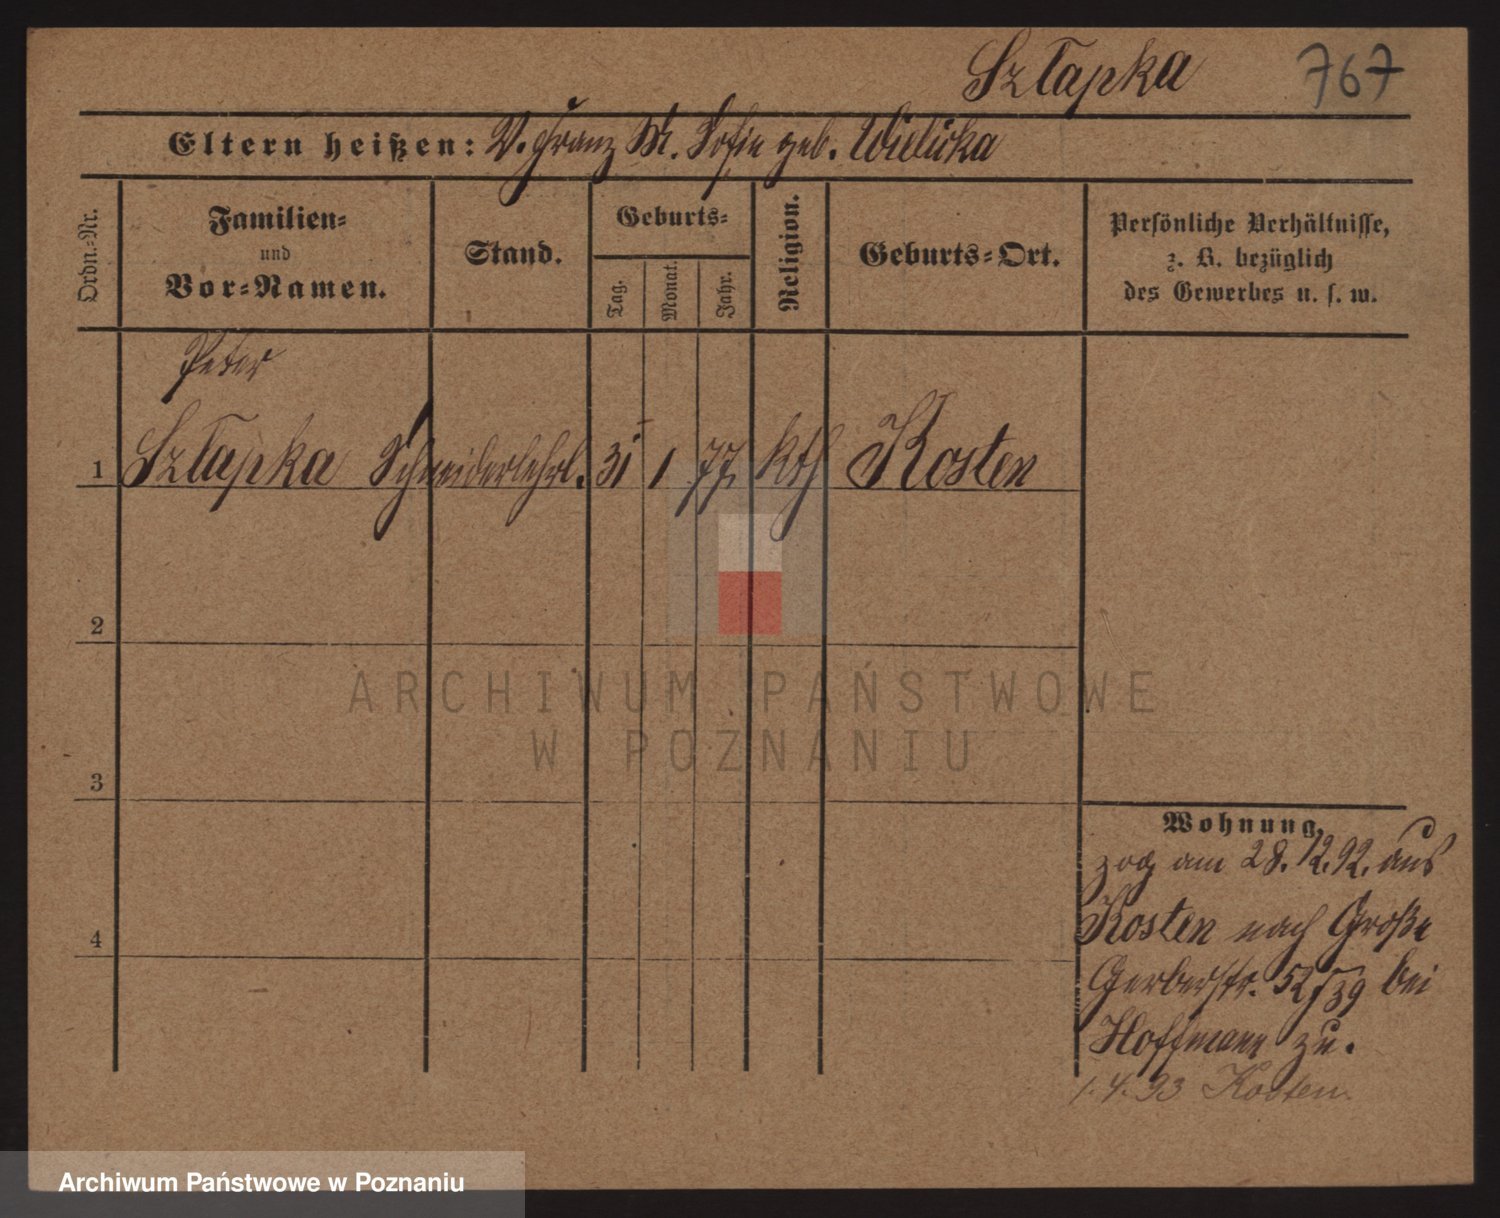 Szłapka 767
Eltern heißen: V. Franz M. Sofie geb. Wielicka
Ordn.-Nr.
Familien-
und
Vor-Namen.
Stand.
Geburts-
Tag.
Monat.
Jahr.
Religion.
Geburts-Ort.
Persönliche Verhältnisse,
z. B. bezüglich
des Gewerbes u. s. w.
Peter
1 Szłapka Schneiderlehrl. 31 1 77 kth Kosten
2
3
4
Wohnung.
zog am 28.12.92. aus
Kosten nach Große
Gerberstr. 52/39 bei
Hoffmann zu.
1.4.93 Kosten.
ARCHIWUM PAŃSTWOWE
W POZNANIU
Archiwum Państwowe w Poznaniu